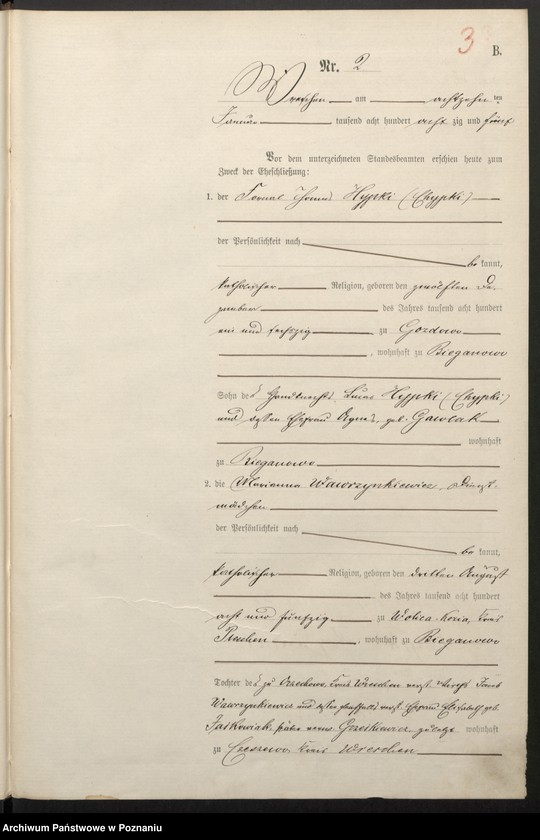 3
B.
Nr. 2
Wreschen am achtzehn ten
Januar tausend acht hundert acht zig und fünf
Vor dem unterzeichneten Standesbeamten erschien heute zum
Zweck der Eheschließung:
1. der Fornal Thomas Hypki (Chypki)
der Persönlichkeit nach
be kannt,
katholischer Religion, geboren den zwölften De-
zember des Jahres tausend acht hundert
ein und sechszig zu Gozdowo
, wohnhaft zu Bieganowo
Sohn des Lucas Hypki (Chypki)
und dessen Ehefrau Agnes, geb. Gawlak
wohnhaft
zu Bieganowo
2. die Marianna Wawrzynkiewicz, Dienst-
mädchen
der Persönlichkeit nach
be kannt,
katholischer Religion, geboren den dritten August
des Jahres tausend acht hundert
acht und fünfzig zu Wolica Kozia, Kreis
, wohnhaft zu Bieganowo
Tochter des zu Orzechowo, Kreis Wreschen verst.
Wawrzynkiewicz und dessen ebenfalls verst. Ehefrau Elisabeth geb.
Jaskowiak, zuletzt wohnhaft
zu Czeszewo, Kreis Wreschen
Archiwum Państwowe w Poznaniu